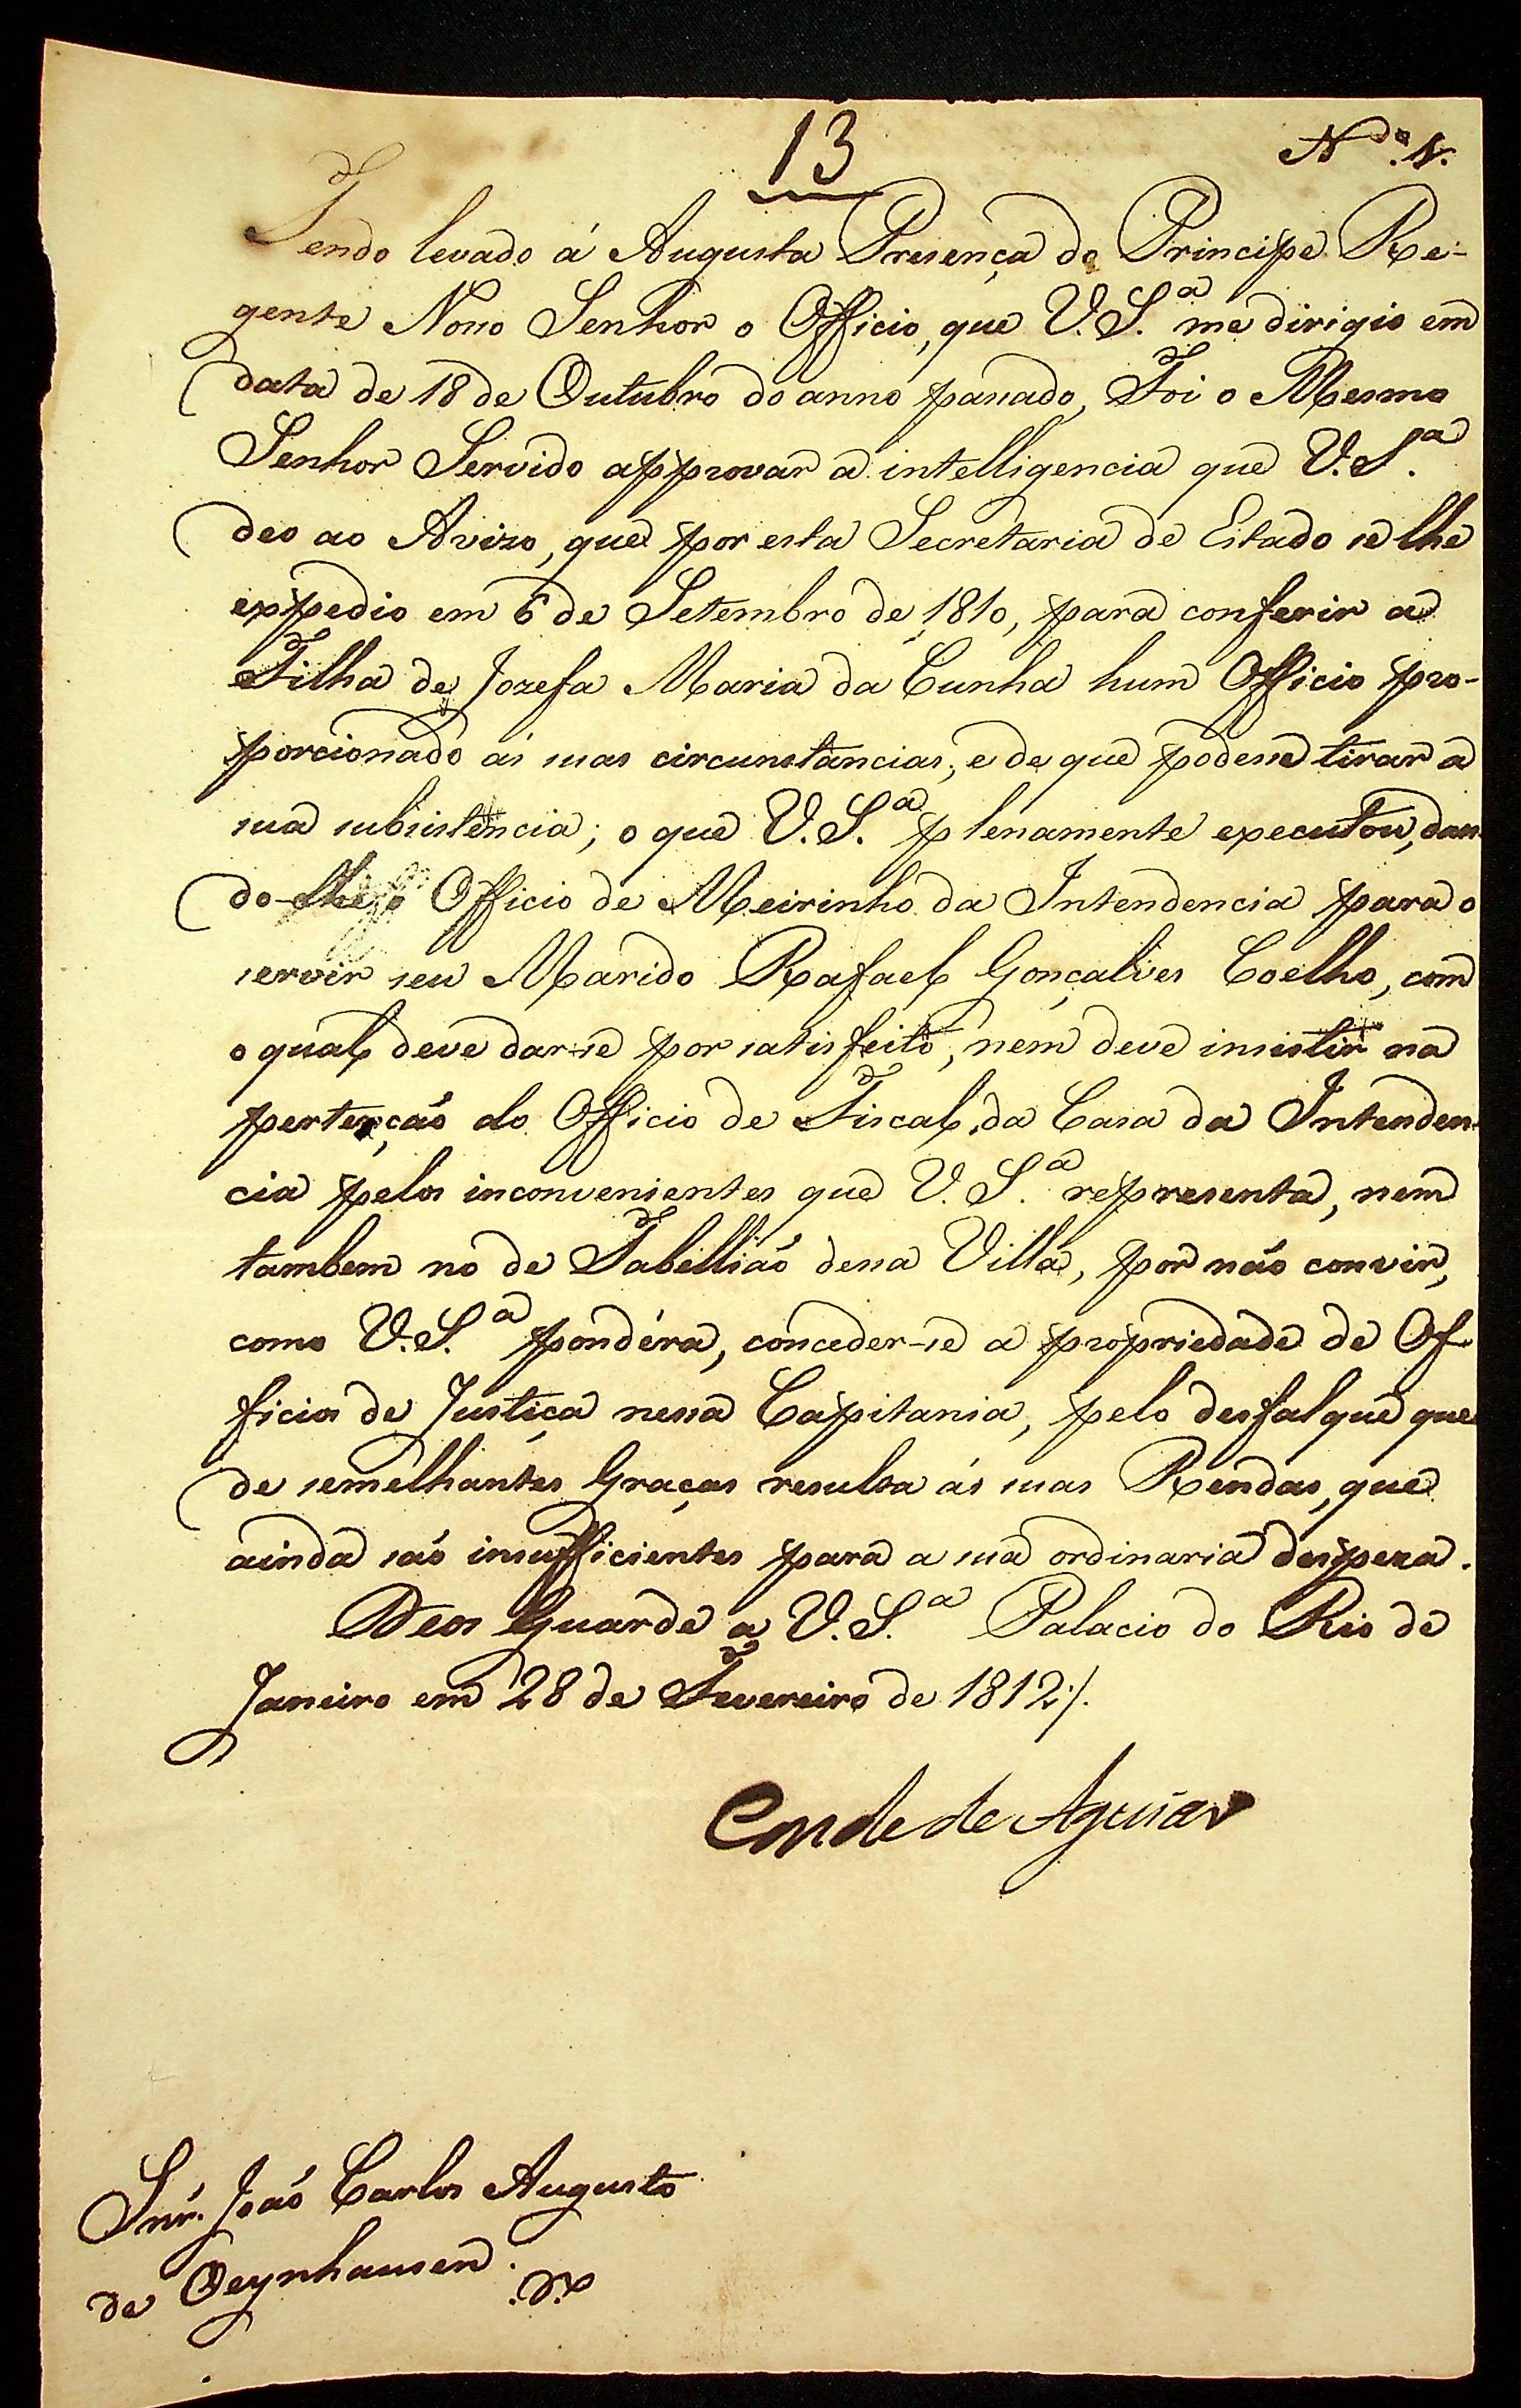 13
N.de 1.
Tendo levado á Augusta Presença do Principe Re-
gente Nosso Senhor o Officio, que V. S.a me dirigio em
data de 18 de Outubro do anno passado, Foi o Mesmo
Senhor Servido approvar a intelligencia que V. S.a
deo ao Avizo, que por esta Secretaria de Estado se lhe
expedio em 6 de Setembro de 1810, para conferir a
Filha de Jozefa Maria da Cunha hum Officio pro-
porcionado ás suas circunstancias, e de que podesse tirar a
sua subsistencia; o que V. S.a plenamente executou, dan-
do-lhe o Officio de Meirinho da Intendencia para o
servir seu Marido Rafael Gonçalves Coelho, com
o qual deve dar-se por satisfeito, nem deve insistir na
pertenção do Officio de Fiscal da Casa da Intenden-
cia pelos inconvenientes que V. S.a representa, nem
tambem no de Tabellião dessa Villa, por não convir,
como V. S.a pondéra, conceder-se a propriedade de Of-
ficios de Justiça nessa Capitania, pelo desfalque que
de semelhantes Graças resulta ás suas Rendas, que
ainda são insufficientes para a sua ordinaria despeza.
Deos Guarde a V. S.a Palacio do Rio de
Janeiro em 28 de Fevereiro de 1812 /.
Conde de Aguiar
Snr. João Carlos Augusto
de Oeynhausen.